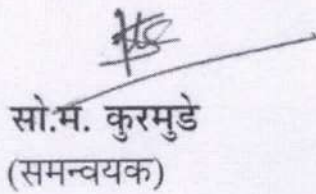 सो.म. कुरमुडे
(समन्वयक)